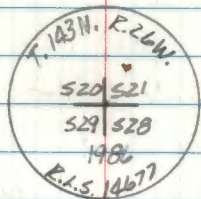 T. 143 N. R. 26 W.
S20 S21
S29 S28
1986
R.L.S. 14677